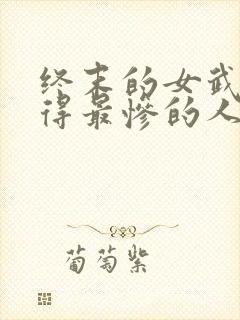 终末的女武
得最惨的人
葡萄紫